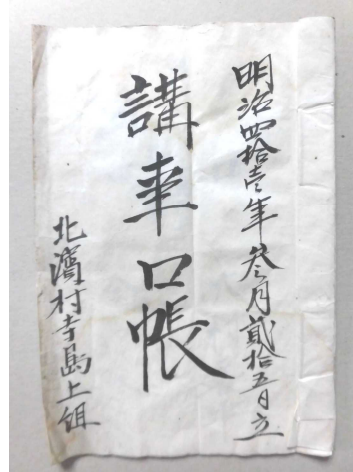 明治四拾壱年叁月貳拾五日立
講車口帳
北濱村寺島上組